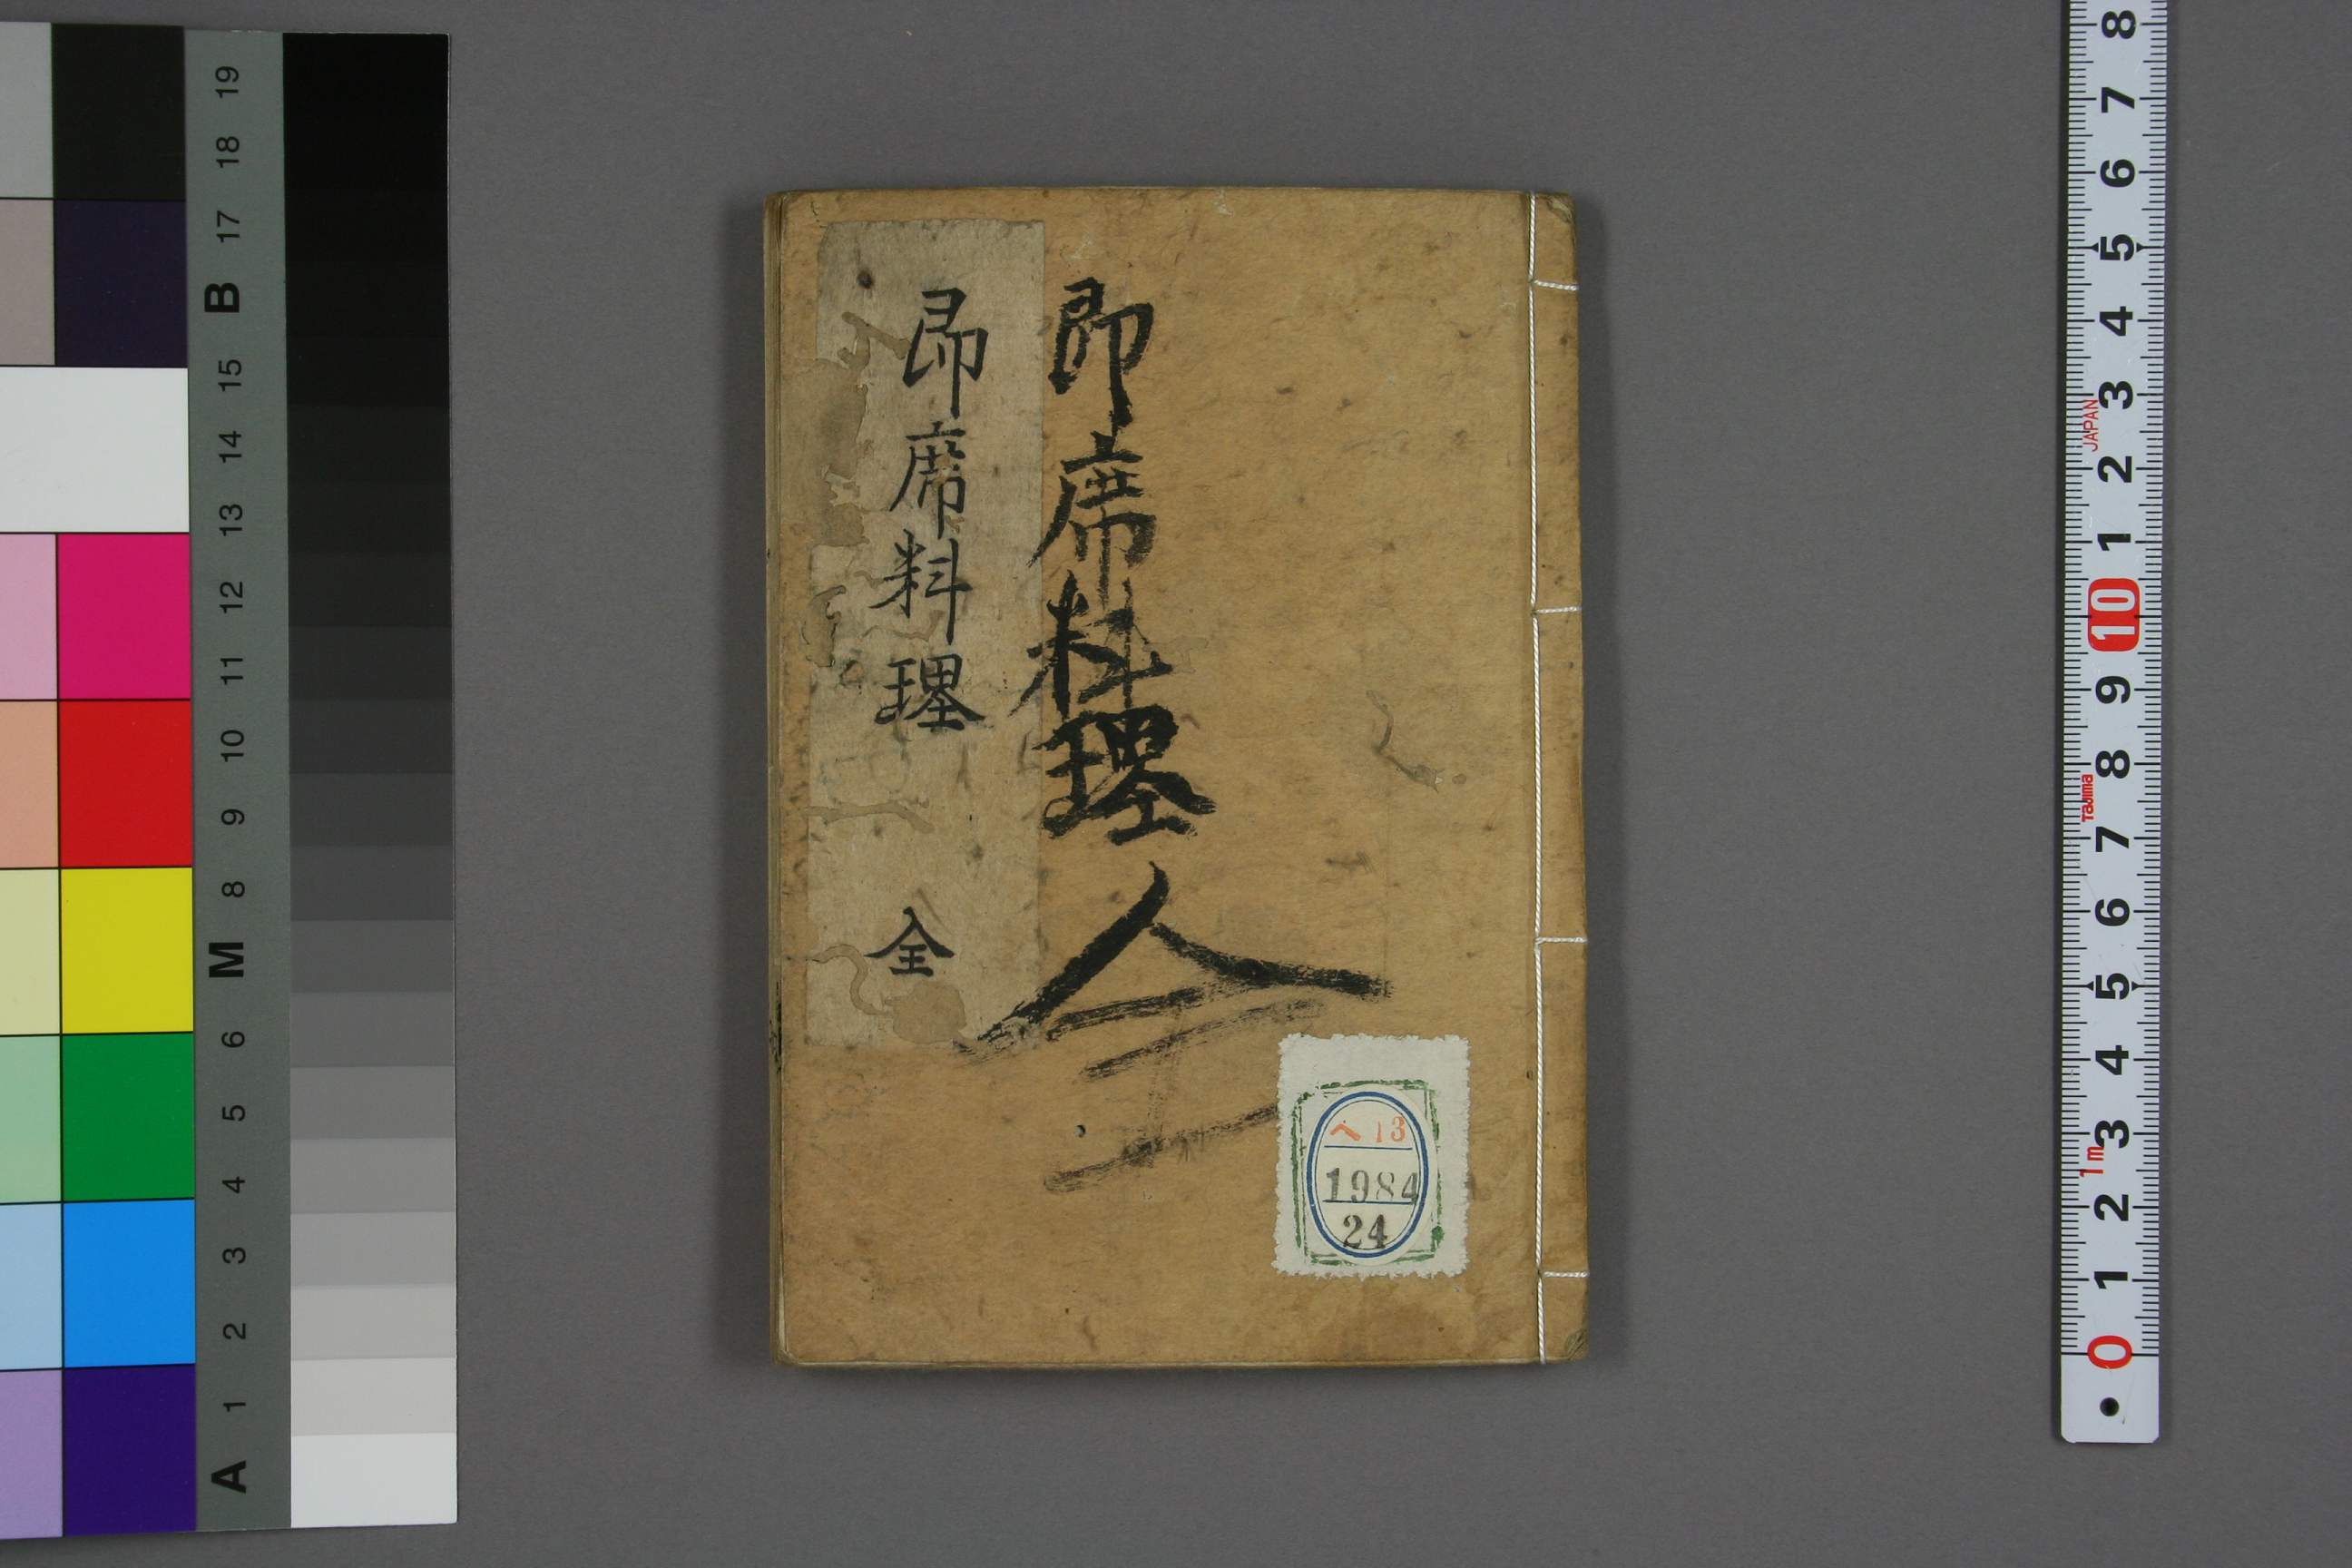 即席料理 全
即席料理 全
ヘ13
1984
24
19
18
17
B
15
14
13
12
11
10
9
8
M
6
5
4
3
2
1
A
8
7
6
5
4
3
JAPAN
2
1
10
9
8
Tajima
7
6
5
4
3
1m
2
1
0